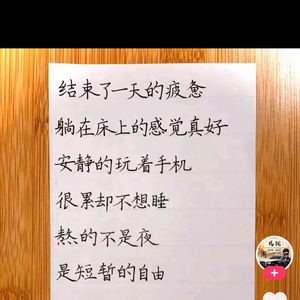 结束了一天的疲惫
躺在床上的感觉真好
安静的玩着手机
很累却不想睡
熬的不是夜
是短暂的自由